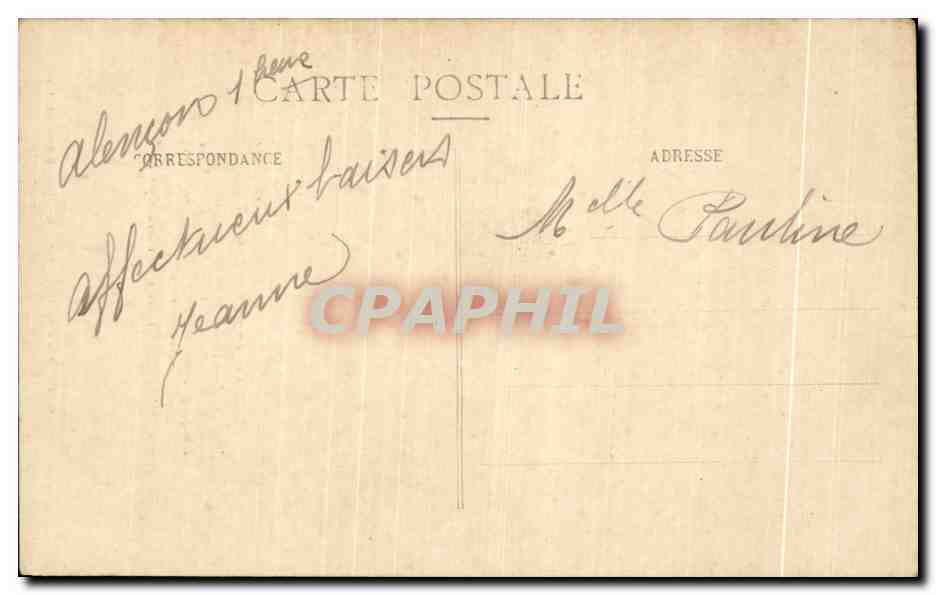 CARTE POSTALE
Alençon 1 heure
CORRESPONDANCE
Affectueux baisers
Jeanne
ADRESSE
Melle Pauline
CPAPHIL